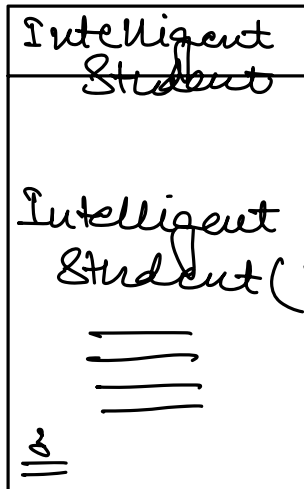 Intelligent
Student
Intelligent
Student (
}